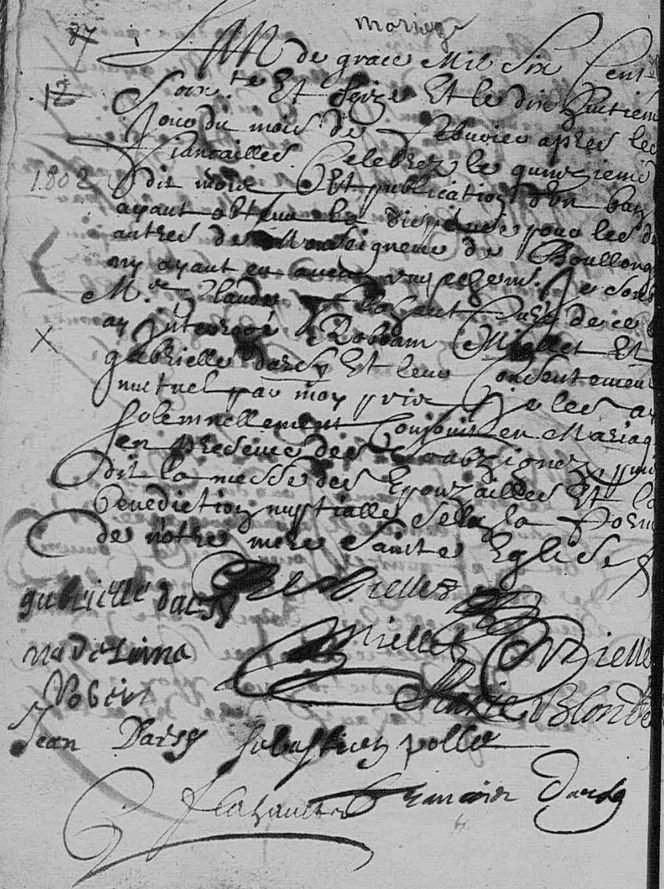 mariage
37
L'An de grace Mil Six Cent
12
Soix.te Et seize Et le dix huitiem
Jour du mois de febvrier apres les
fiancailles Celebrez le quinzieme
1802
dit mois Et publication d'un ban
ayant obtenu la dispense pour les d
autres de Monseigneur de Boullong
ny ayant eu aucun empechem.t Je sous
M.re Claude flahaut Curé de ce
X
ay Interrogé Robbam Miellet Et
gabrielle darsy Et leur Consentement
mutuel par moy pris Je les ay
solemnellement Conjoint en Mariag
en presence des soubsignez puis
dit la messe des Epouzailles Et la
benediction nuptialle selon la form
de nôtre mere Saincte Eglise
gabrielle darsy R Miellet
madelaine Miellet Mielle
Robert Marie Blond
Jean Darsy sebastien pollet
flahaut francois Darsy